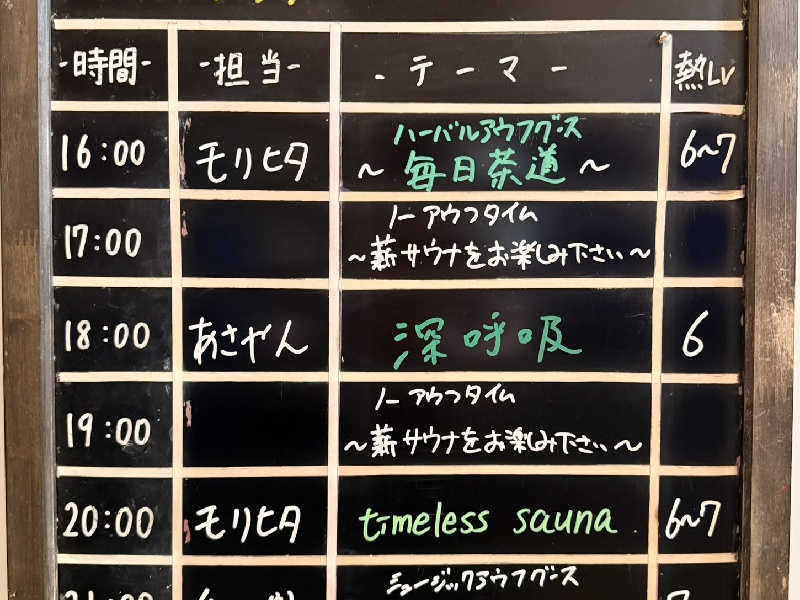 -時間- -担当- -テーマ- 熱Lv
16:00 モリヒタ ハーバルアウフグース 6~7
~毎日茶道~
17:00 ノーアウフタイム
~薪サウナをお楽しみ下さい~
18:00 あさやん 深呼吸 6
19:00 ノーアウフタイム
~薪サウナをお楽しみ下さい~
20:00 モリヒタ timeless sauna 6~7
ミュージックアウフグース